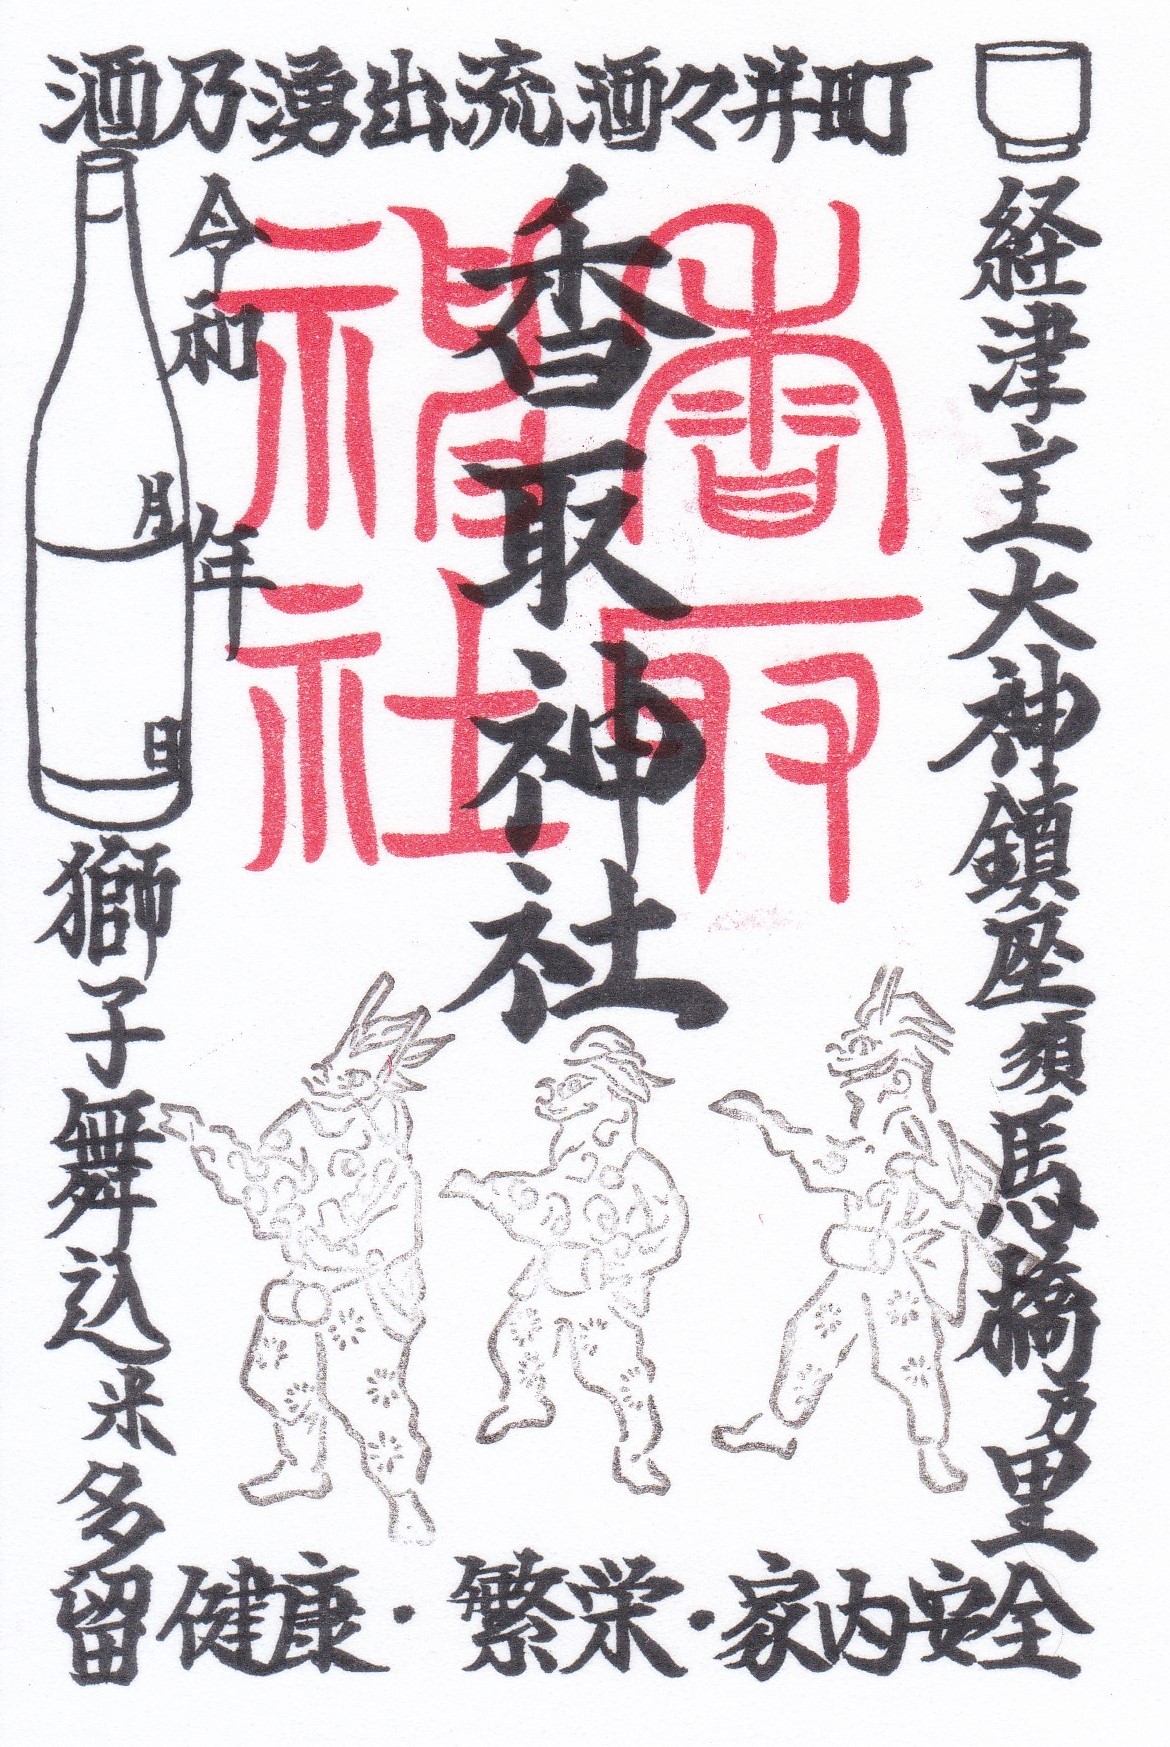 酒乃湧出流酒々井町
経津主大神鎮座須馬橋乃里
香取神社
香取神社
令和 年
月
日
獅子舞込米多留
健康・繁栄・家内安全